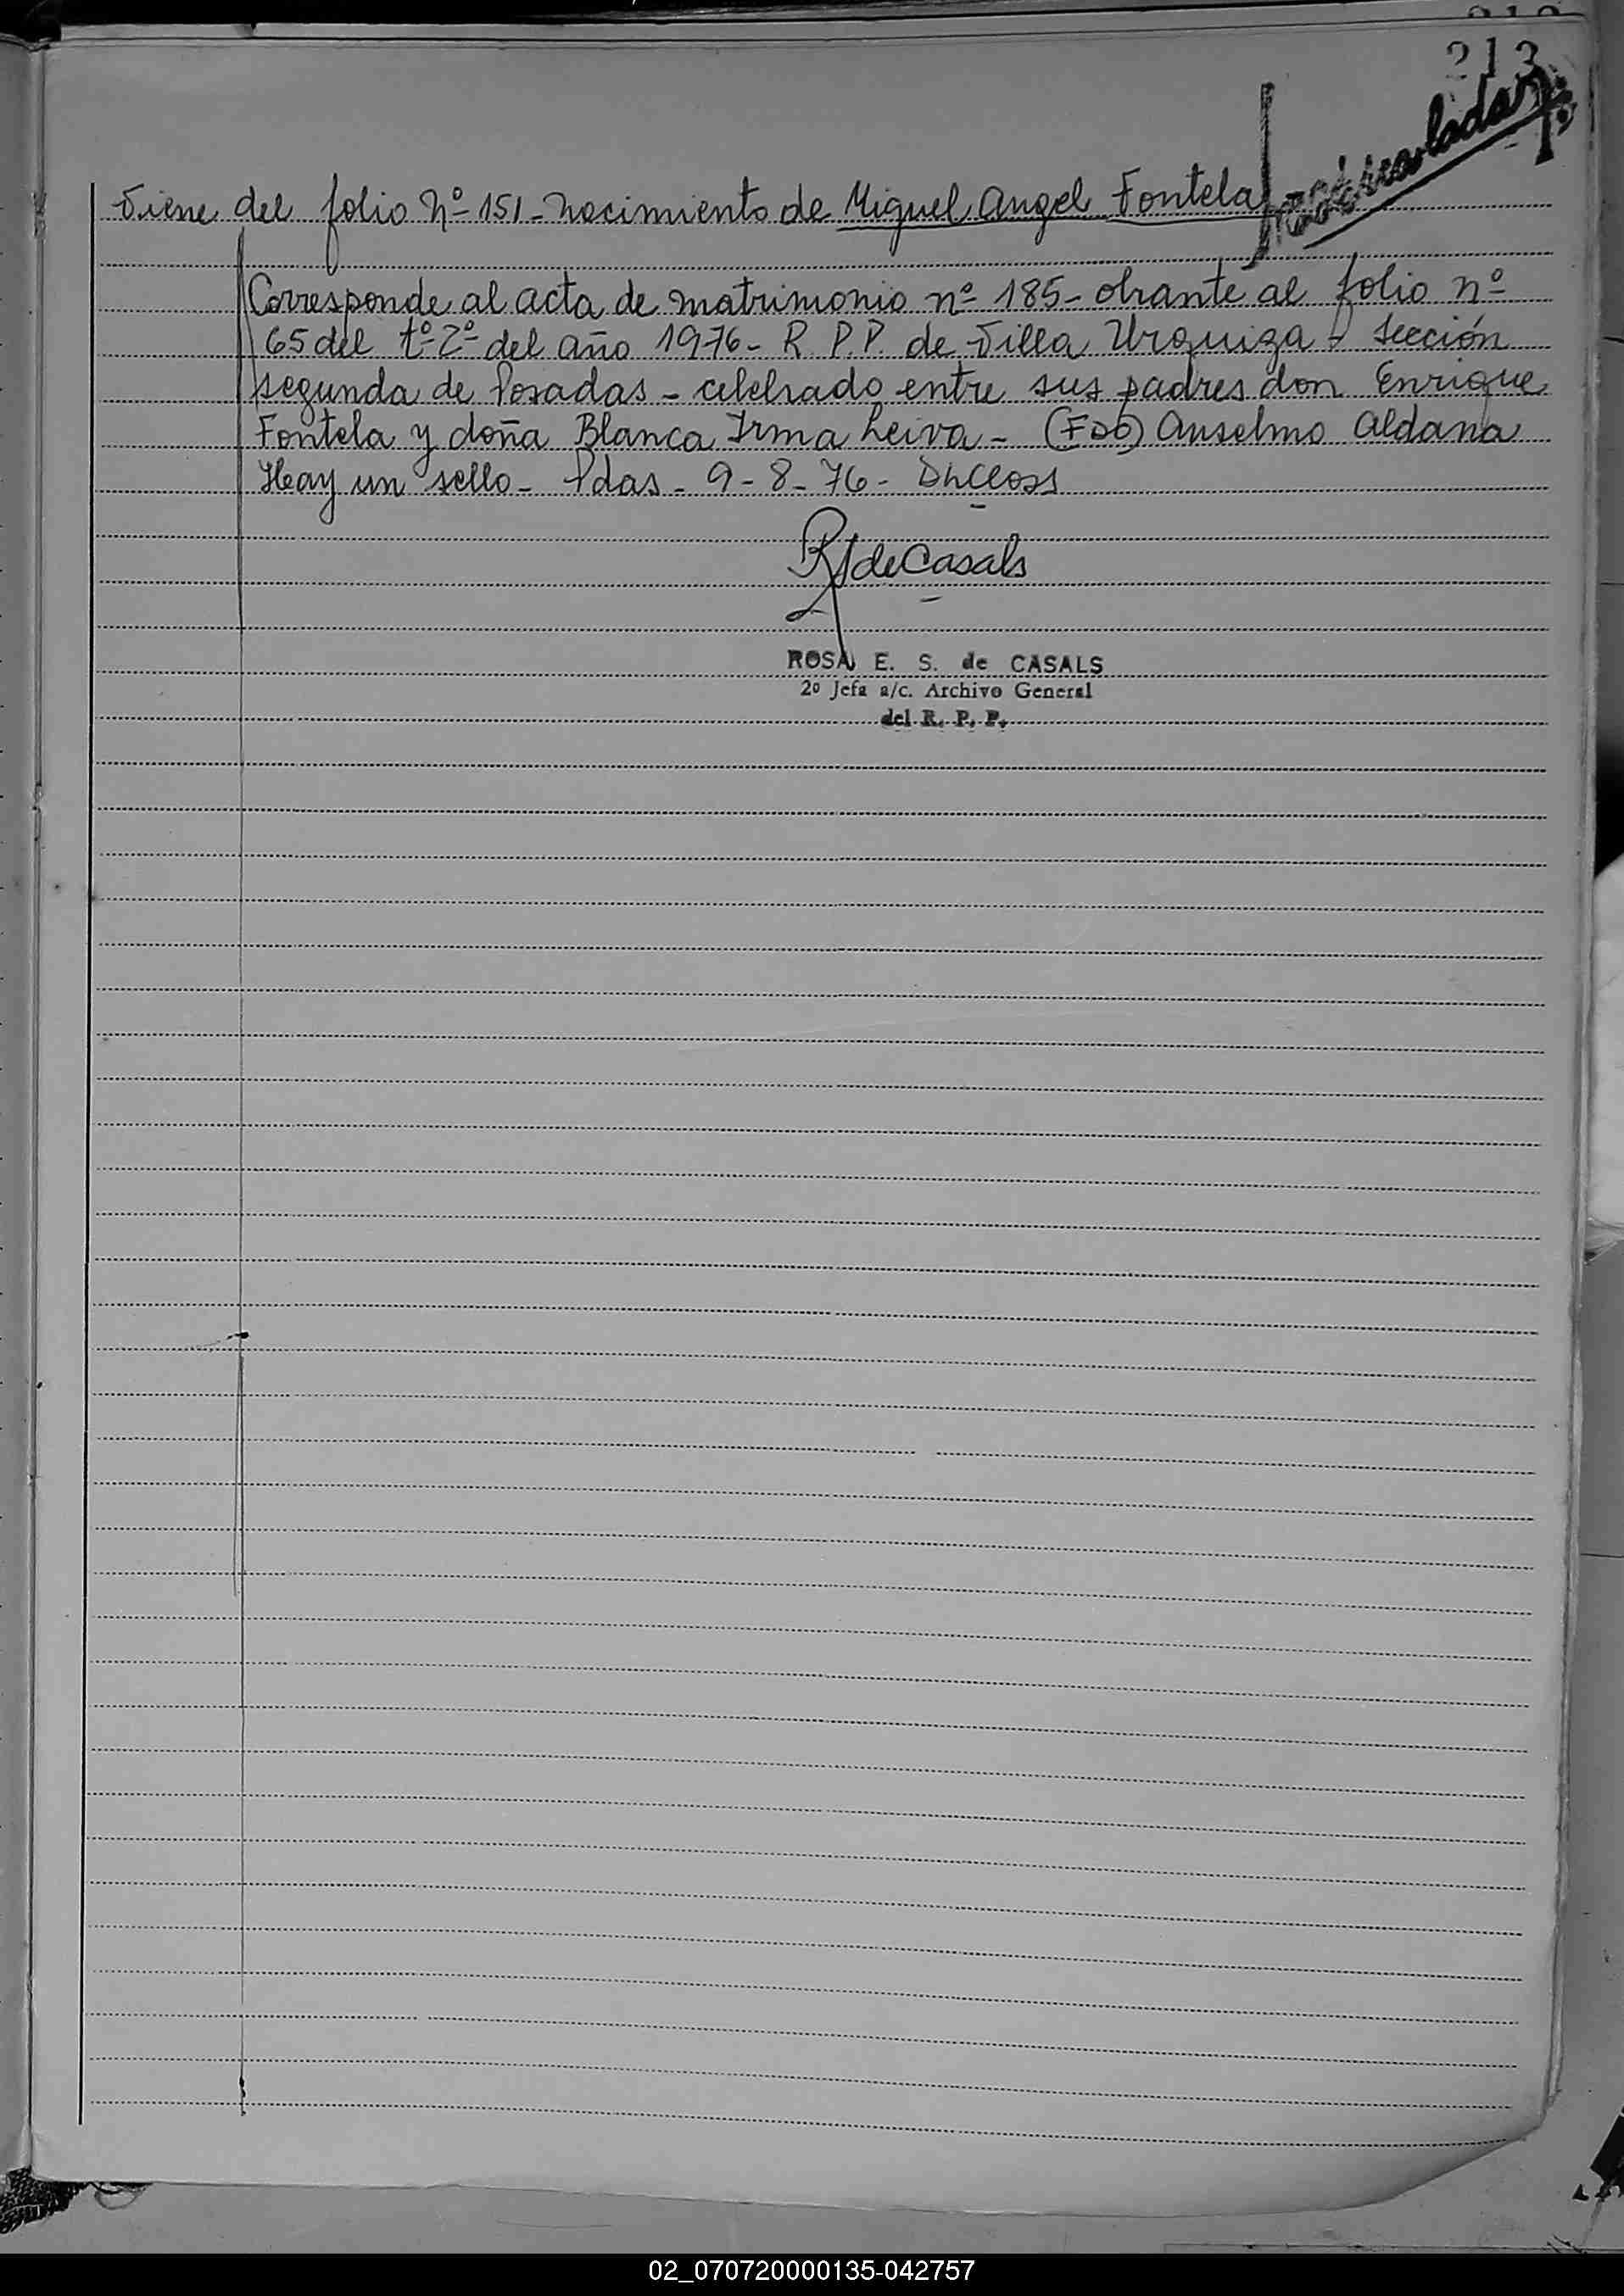 213
Viene del folio Nº 151 - Nacimiento de Miguel Angel Fontela
Corresponde al acta de matrimonio nº 185 - obrante al folio nº
65 del tº 2º del año 1976 - R. P.P. de Villa Urquiza - Sección
segunda de Posadas - celebrado entre sus padres don Enrique
Fontela y doña Blanca Irma Leiva - (Fdo) Anselmo Aldana
Hay un sello - Pdas - 9 - 8 - 76 -
de Casals
ROSA E. S. de CASALS
2º Jefa a/c. Archivo General
del R. P. P.
02_070720000135-042757